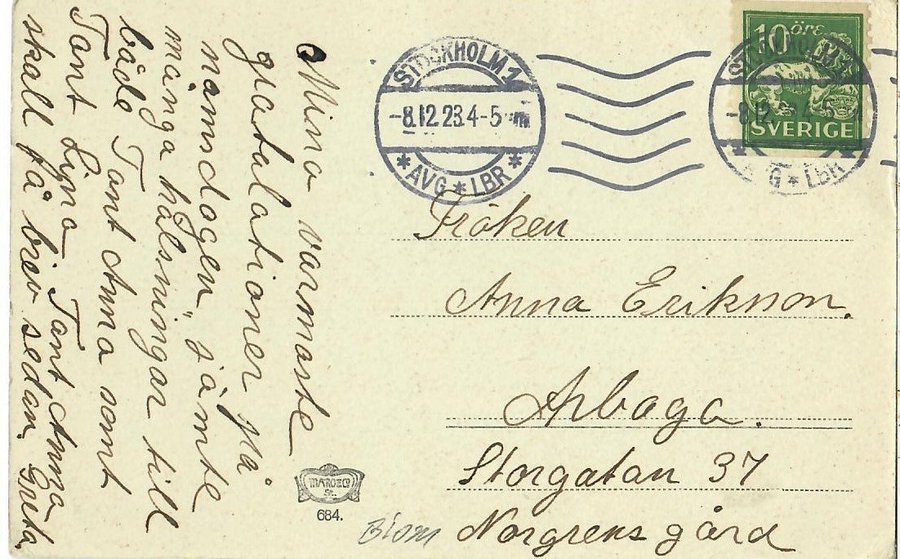 Mina varmaste
gratulationer på
namnsdagen, jämte
många hälsningar till
både Tant Anna samt
Tant Lyna Tant Anna
skall få brev sedan. Greta.
STOCKHOLM 1
-8.12.23.4-5 m
* AVG * LBR *
10 öre
SVERIGE
STOCKHOLM 1
-8.12.23.4-5
* AVG * LBR *
Fröken
Anna Erikson.
Arboga.
Storgatan 37
Blom Norgrens gård
684.